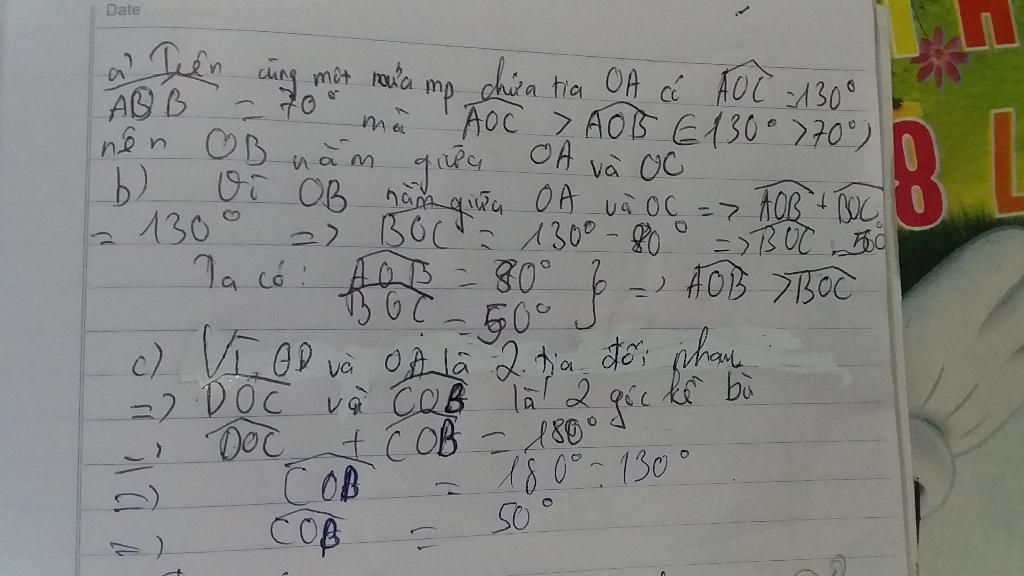 Date
a) Trên cùng một nửa mp chứa tia OA có AOC = 130°
AOB = 70° mà AOC > AOB (130° > 70°)
nên OB nằm giữa OA và OC
b) Vì OB nằm giữa OA và OC => AOB + BOC
= 130° => BOC = 130° - 80° => BOC = 50°
Ta có: AOB = 80° } => AOB > BOC
BOC = 50°
c) Vì OD và OA là 2 tia đối nhau
=> DOC và COB là 2 góc kề bù
=> DOC + COB = 180°
=> COB = 180° - 130°
=> COB = 50°
8